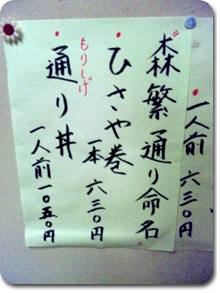 一人前 六三〇円
森繁通り命名
・ひさや巻
一本 六三〇円
もりしげ
・通り丼
一人前 一〇五〇円